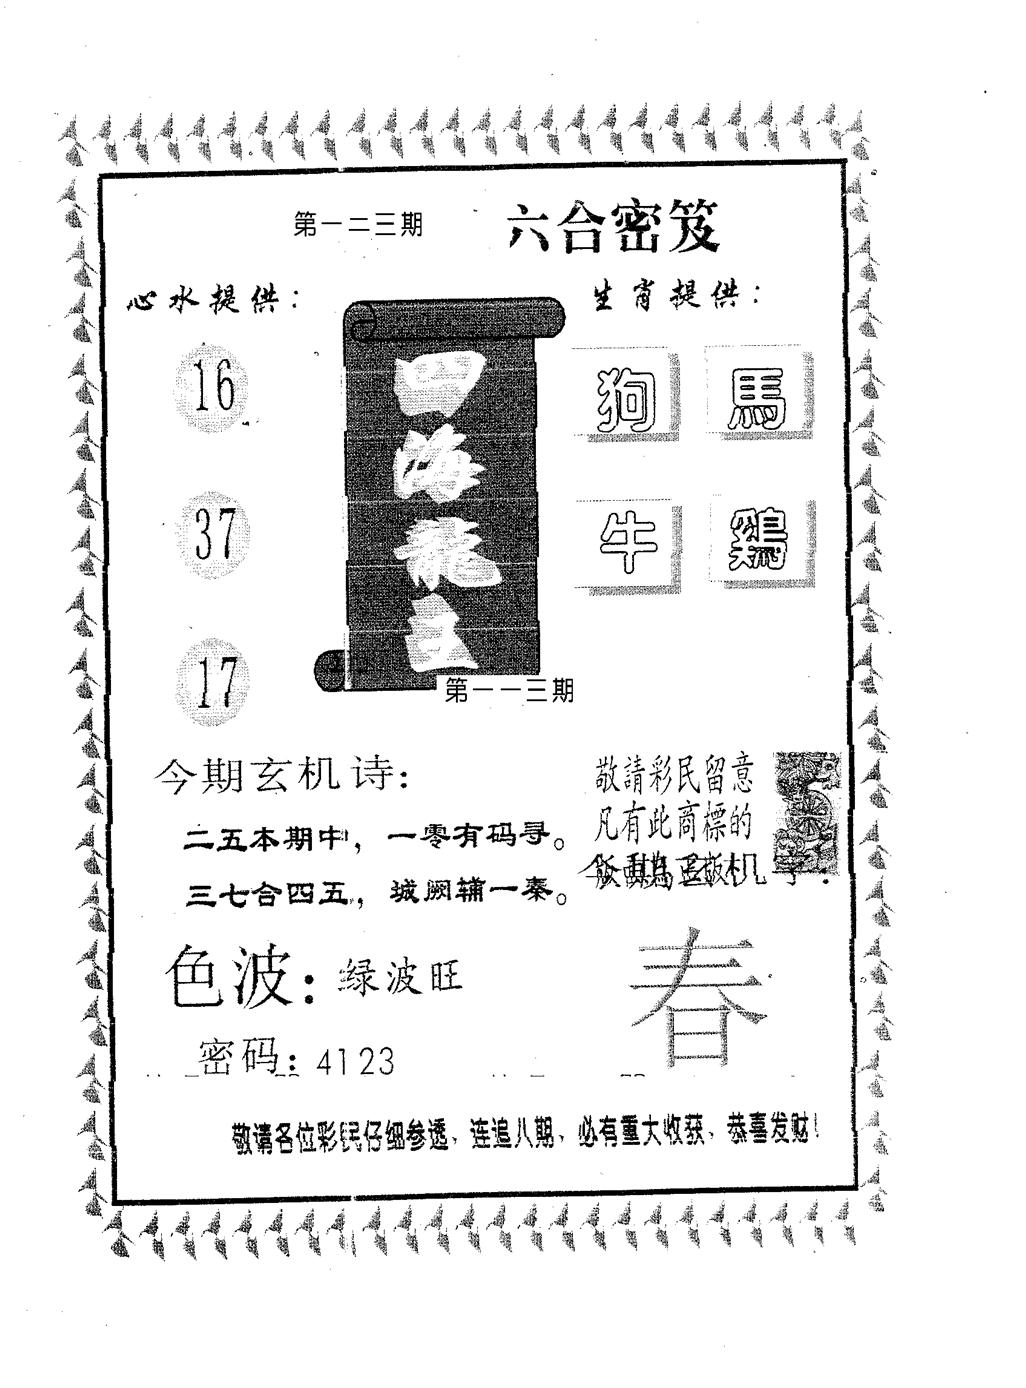 第一二三期 六合密笈
心水提供：
生肖提供：
16
37
17
四海龍王
第一一三期
狗 馬
牛 鷄
今期玄机诗：
二五本期中，一零有码寻。
三七合四五，城阙辅一秦。
敬請彩民留意
凡有此商標的
春
色波：绿波旺
密码：4123
敬请各位彩民仔细参透、连追八期、必有重大收获、恭喜发财！